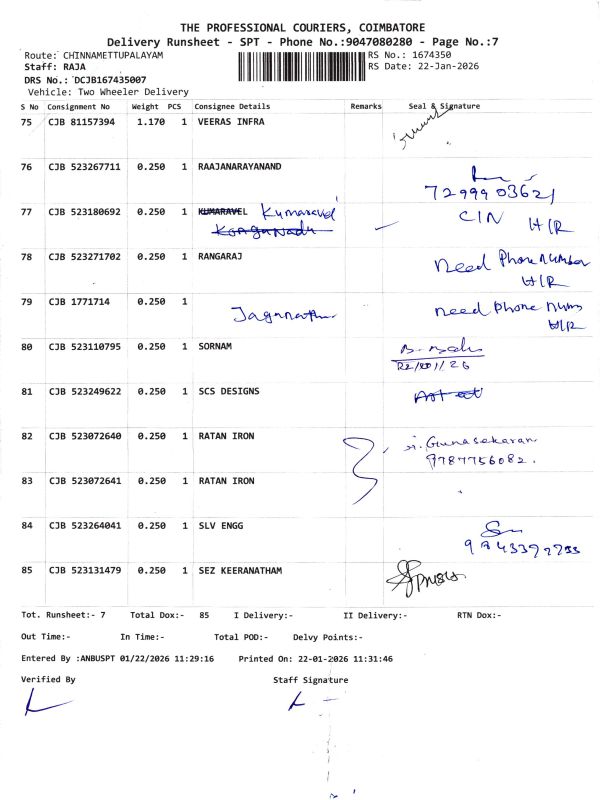 THE PROFESSIONAL COURIERS, COIMBATORE
Delivery Runsheet - SPT - Phone No.:9047080280 - Page No.:7
Route: CHINNAMETTUPALAYAM
RS No.: 1674350
Staff: RAJA
RS Date: 22-Jan-2026
DRS No.: DCJB167435007
Vehicle: Two Wheeler Delivery
S No Consignment No Weight PCS Consignee Details Remarks Seal & Signature
75 CJB 81157394 1.170 1 VEERAS INFRA
76 CJB 523267711 0.250 1 RAAJANARAYANAND
7299903621
77 CJB 523180692 0.250 1 KUMARAVEL Kumaravel CIN H/R
KonguNadu
78 CJB 523271702 0.250 1 RANGARAJ Need Phone Number
H/R
79 CJB 1771714 0.250 1 Jaganath need Phone Num
H/R
80 CJB 523110795 0.250 1 SORNAM
22/01/26
81 CJB 523249622 0.250 1 SCS DESIGNS
82 CJB 523072640 0.250 1 RATAN IRON Gunasekaran
9787756082.
83 CJB 523072641 0.250 1 RATAN IRON
84 CJB 523264041 0.250 1 SLV ENGG
85 CJB 523131479 0.250 1 SEZ KEERANATHAM
Tot. Runsheet:- 7 Total Dox:- 85 I Delivery:- II Delivery:- RTN Dox:-
Out Time:- In Time:- Total POD:- Delvy Points:-
Entered By :ANBUSPT 01/22/2026 11:29:16 Printed On: 22-01-2026 11:31:46
Verified By Staff Signature